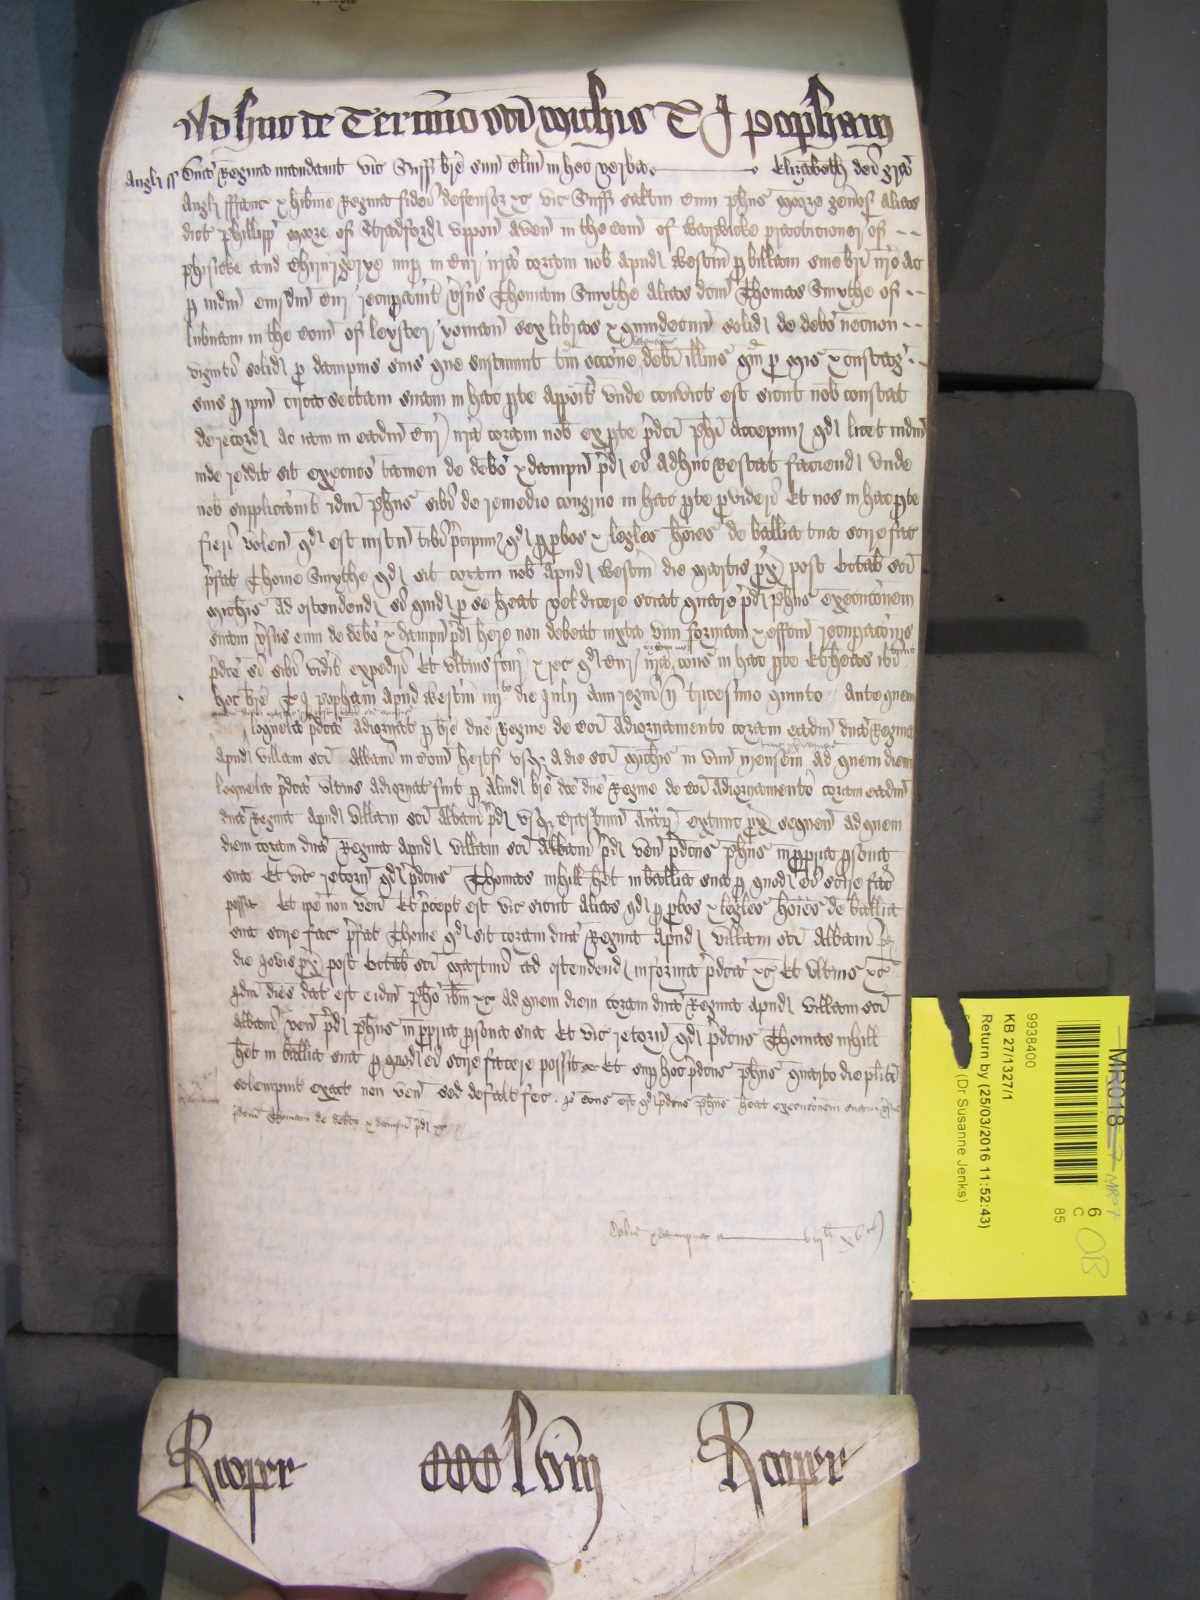 Adhuc de Termīo sci Michis T J Popham
Angl ss Dnā Regina mandavit vic Suff brē suū clm in hec verba Elizabeth dei grā
Angl ffranc & hibnie Regina fidei defensor &c vic Suff saltm Cum phūs Moore genos alias
dict Phillipp Moore of Stradford uppon Aven in the com of Warwicke practicioner of
phisicke and Chirurgerye nup in Cur nrā coram nob apud Westm p billam sine bri nrō ac
p iudm eiusdm Cur recupavit vsus Thomam Smythe alias dcm Thomas Smythe of
lubnam in the com of leyster yoman sex libras & quindecim solid de debo necnon
viginti solid p dampnis suis que sustinuit tm occone detencois debi illius qm p mis & custag
suis p ipm circa sectam suam in hac pte appoit unde convict est sicut nob constat
de record ac iam in eadm Cur nrā coram nob ex pte pdci Phi accepim qd licet iudm
inde reddit sit execuco tamen de debo & dampn pd ei adhuc restat faciend unde
nob supplicavit idm Phūs sibi de remedio congruo in hac pte pvideri Et nos in hac pte
fieri volen qd est iustu tibi pcipim qd p pbos & legles hoies de ballia tua scire fac
pfat Thome Smythe qd sit coram nob apud Westm die Martis px post Octab sci
Michis ad ostendend si quid p se heat vel dicere sciat quare pd Phūs execucōnem
suam vsus eum de debo & dampn pd here non debeat iuxta vim formam & effcm recupacōnis
pdce si sibi vidit expedire Et ultius fcur & rec qd Cur nrā coram nob cons in hac pte Et heas ibi
hoc brē T J Popham apud Westm iiij to die Julij Anno regni nri tricesimo quinto Ante quem
loquela pdca adiornat p brē dnē Regine de coi adiornamento coram eadm dnā Regina
apud villam sci Albani in com hertf usqz a die sci Michis in unu mensem ad quem diem
loquela pdca ultius adiornat fuit p aliud brē dcē dnē Regine de coi adiornamento coram eadm
dnā Regina apud villam sci Albani pd usqz crastinu aiār extunc px sequen ad quem
diem coram dnā Regina apud villam sci Albani pd ven pdcus Phūs in ppria psona
sua Et vic retorn qd pdcus Thomas nihil het in ballia sua p quod ei scire fac
possit Et ipe non ven Et pcept est vic sicut alias qd p pbos & legles hoies de ballia
sua scire fac pfat Thome qd sit coram dnā Regina apud villam sci Albani pd
die Jovis px post Octab sci Martini ad ostendend in forma pdca &c Et ultius &c
Idm dies dat est eidm Pho ibm &c ad quem diem coram dnā Regina apud villam sci
Albani ven pd Phūs in ppria psona sua Et vic retorn qd pdcus Thomas nihil
het in ballia sua p quod ei scire facere possit Et sup hoc pdcus Phūs quarto die pliti
solempnit exact non ven sed defalt fec Io cons est qd pdcus Phūs heat execucōnem suam vsus
Thomam de debo & dampn pd &c
Debm & dampna viij li xv s
Roper ccclviij Roper
9938400
KB 27/1327/1
Return by (25/03/2016 11:52:43)
(Dr Susanne Jenks)
6
C
85
MR07
OB